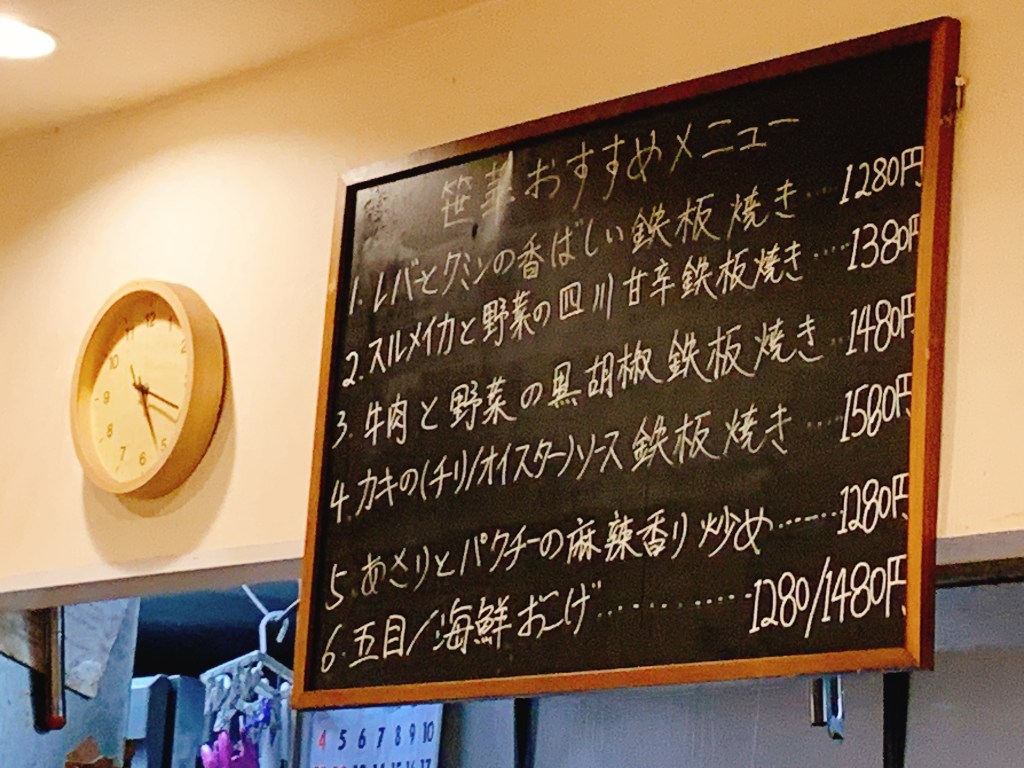 笹華おすすめメニュー
1. レバーとクミンの香ばしい鉄板焼き……1280円
2. スルメイカと野菜の四川甘辛鉄板焼き……1380円
3. 牛肉と野菜の黒胡椒鉄板焼き……1480円
4. カキの(チリ/オイスター)ソース鉄板焼き……1580円
5. あさりとパクチーの麻辣香り炒め……1280円
6. 五目/海鮮おこげ……1280/1480円
12
11
10
9
8
7
6
5
2
4 5 6 7 8 9 10